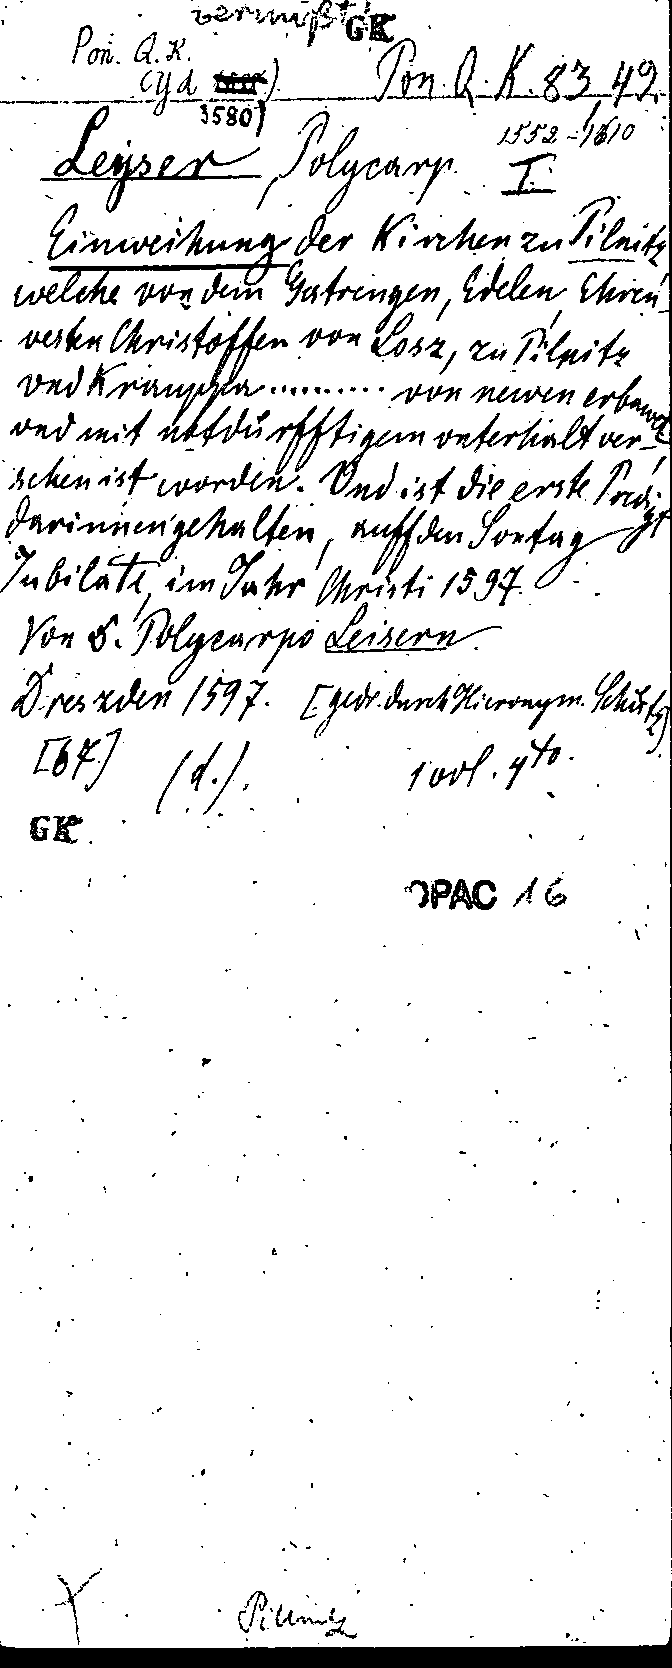 vermißt! GK
Pon. Q. K.
(Yd
3580)
Pon. Q. K. 83, 49.
Leyser, Polycarp. I.
1552-1610
Einweihung der Kirchen zu Pilnitz
welche von dem Gestrengen, Edelen, Ehren-
vesten Christoffen von Losz, zu Pilnitz
vnd Krauppa .......... von newen erbawet
vnd mit notdurfftigem vnterhalt ver-
sehen ist worden. Vnd ist die erste Predigt
darinnen gehalten, auff den Sontag
Jubilate, im Jahr Christi 1597.
Von D. Polycarpo Leisern.
Dreszden 1597. [gedr. durch Hieronym. Schütz]
[67] (d.). 1 vol. 4to.
GK
OPAC 16
Pillnitz